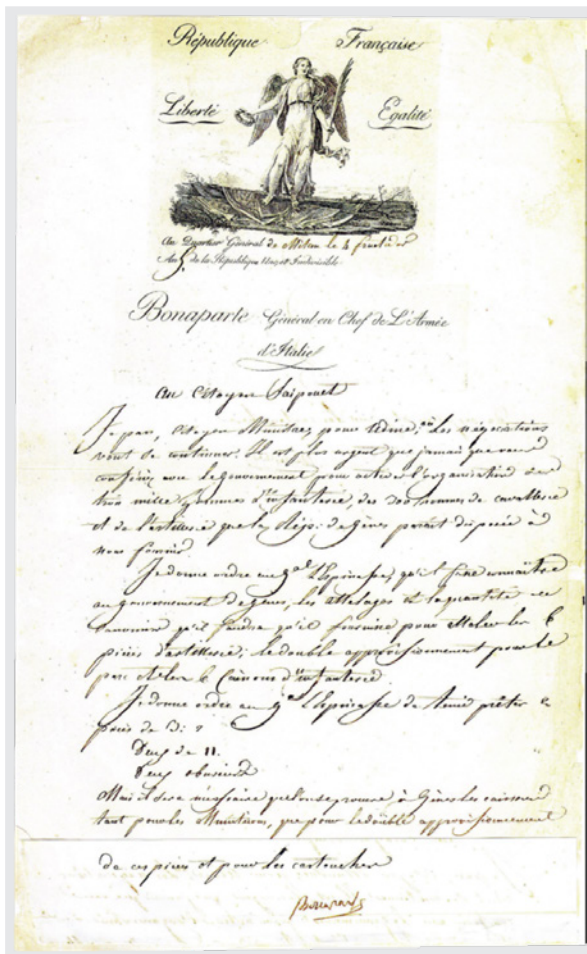 République Française
Liberté Egalité
Au Quartier Général de Milan le 4 fructidor
An 5 de la République Une et Indivisible
Bonaparte Général en Chef de L'Armée
d'Italie
Au Citoyen Faipoult
Je pars, Citoyen Ministre, pour Udine, où les négociations
vont se continuer. Il est plus urgent que jamais que vous
avec le gouvernement pour activer l'organisation de
trois mille hommes d'infanterie, des 300 hommes de cavallerie
et de l'artillerie que la Rép. de Gênes paraît disposée à
nous fournir
Je donne ordre au gal Lespinasse, qu'il fasse connaître
au gouvernement de Gênes, les attelages et la quantité de
qu'il faudra qu'il fournisse pour atteler les 6
pièces d'artillerie; le double approvisionnement pour le
parc et les 6 Caissons d'infanterie
Je donne ordre au gal Lespinasse de tenir prêtes 2
pièces de
Deux de 11.
Deux obusiers
Mais il sera nécessaire que l'on se procure, à Gênes les caissons
tant pour les Munitions, que pour le double approvisionnement
de ces pièces et pour les cartouches
Bonaparte